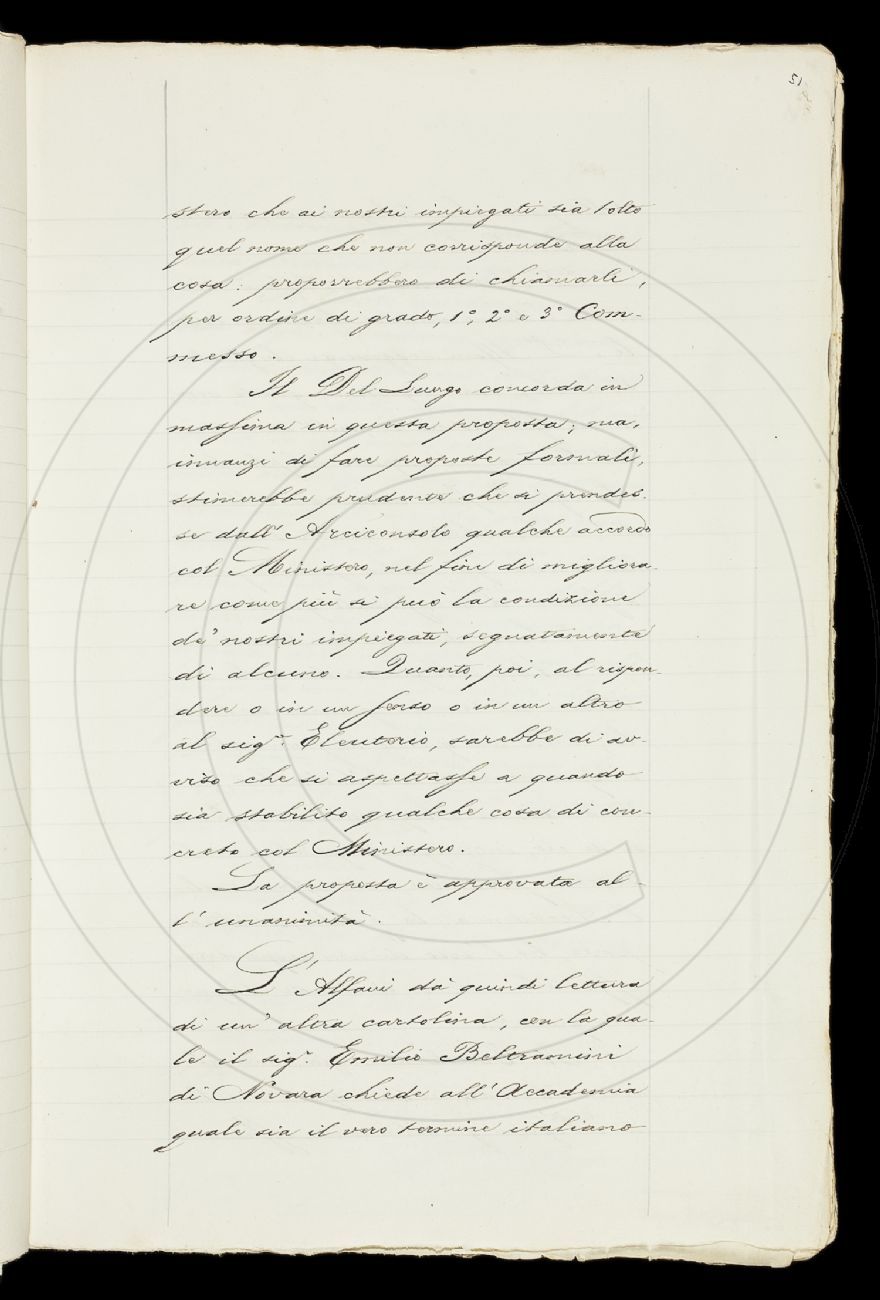 51
stero che ai nostri impiegati sia tolto
quel nome che non corrisponde alla
cosa: proporrebbero di chiamarli,
per ordine di grado, 1°, 2° e 3° Com-
messo.
Il Del Lungo concorda in
massima in questa proposta; ma,
innanzi di fare proposte formali,
stimerebbe prudente che si prendes-
se dall' Arciconsolo qualche accordo
col Ministero, nel fine di migliora-
re come più si può la condizione
de' nostri impiegati, segnatamente
di alcuno. Quanto, poi, al rispon-
dere o in un senso o in un altro
al sigr. Eleuterio, sarebbe di av-
viso che si aspettasse a quando
sia stabilito qualche cosa di con-
creto col Ministero.
La proposta è approvata al-
l' unanimità.
L' Alfani dà quindi lettura
di un' altra cartolina, con la qua-
le il sigr. Emilio Beltramini
di Novara chiede all' Accademia
quale sia il vero termine italiano